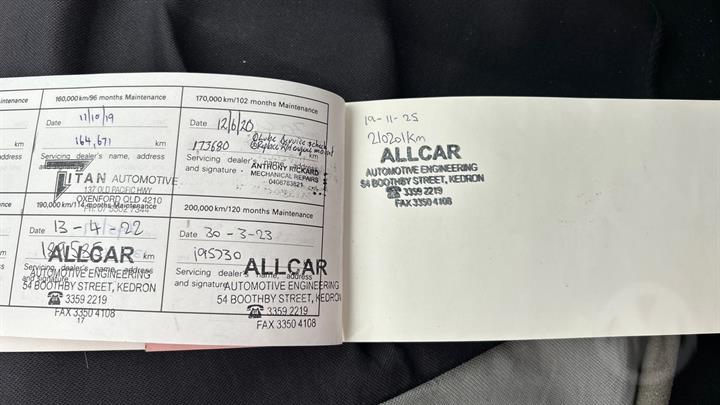 160,000 km/96 months Maintenance
11/10/19
164,671 km
Servicing dealer's name, address
TITAN AUTOMOTIVE
137 OLD PACIFIC HWY
OXENFORD QLD 4210
170,000 km/102 months Maintenance
Date 12/6/20
173680 km
Servicing dealer's name, address
and signature
ANTHONY RICKARD
MECHANICAL REPAIRS
0408783821
190,000 km/114 months Maintenance
Date 13-4-22
km
Servicing dealer's name, address
and signature
ALLCAR
AUTOMOTIVE ENGINEERING
54 BOOTHBY STREET, KEDRON
☎ 3359 2219
FAX 3350 4108
17
200,000 km/120 months Maintenance
Date 30-3-23
195730
Servicing dealer's name, address
and signature
ALLCAR
AUTOMOTIVE ENGINEERING
54 BOOTHBY STREET, KEDRON
☎ 3359 2219
FAX 3350 4108
19-11-25
210201km
ALLCAR
AUTOMOTIVE ENGINEERING
54 BOOTHBY STREET, KEDRON
☎ 3359 2219
FAX 3350 4108